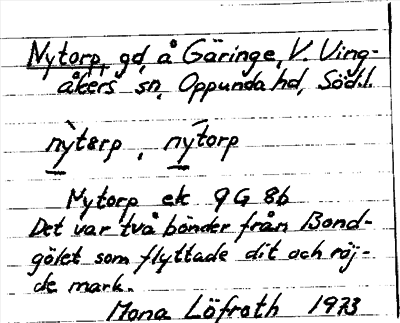 Nytorp, gd, å Gäringe, V. Ving-
åkers sn, Oppunda hd, Söd.l.
nỳtərp, nýtorp
Nytorp ek 9G 8b
Det var två bönder från Bond-
gölet som flyttade dit och röj-
de mark.
Mona Löfroth 1973